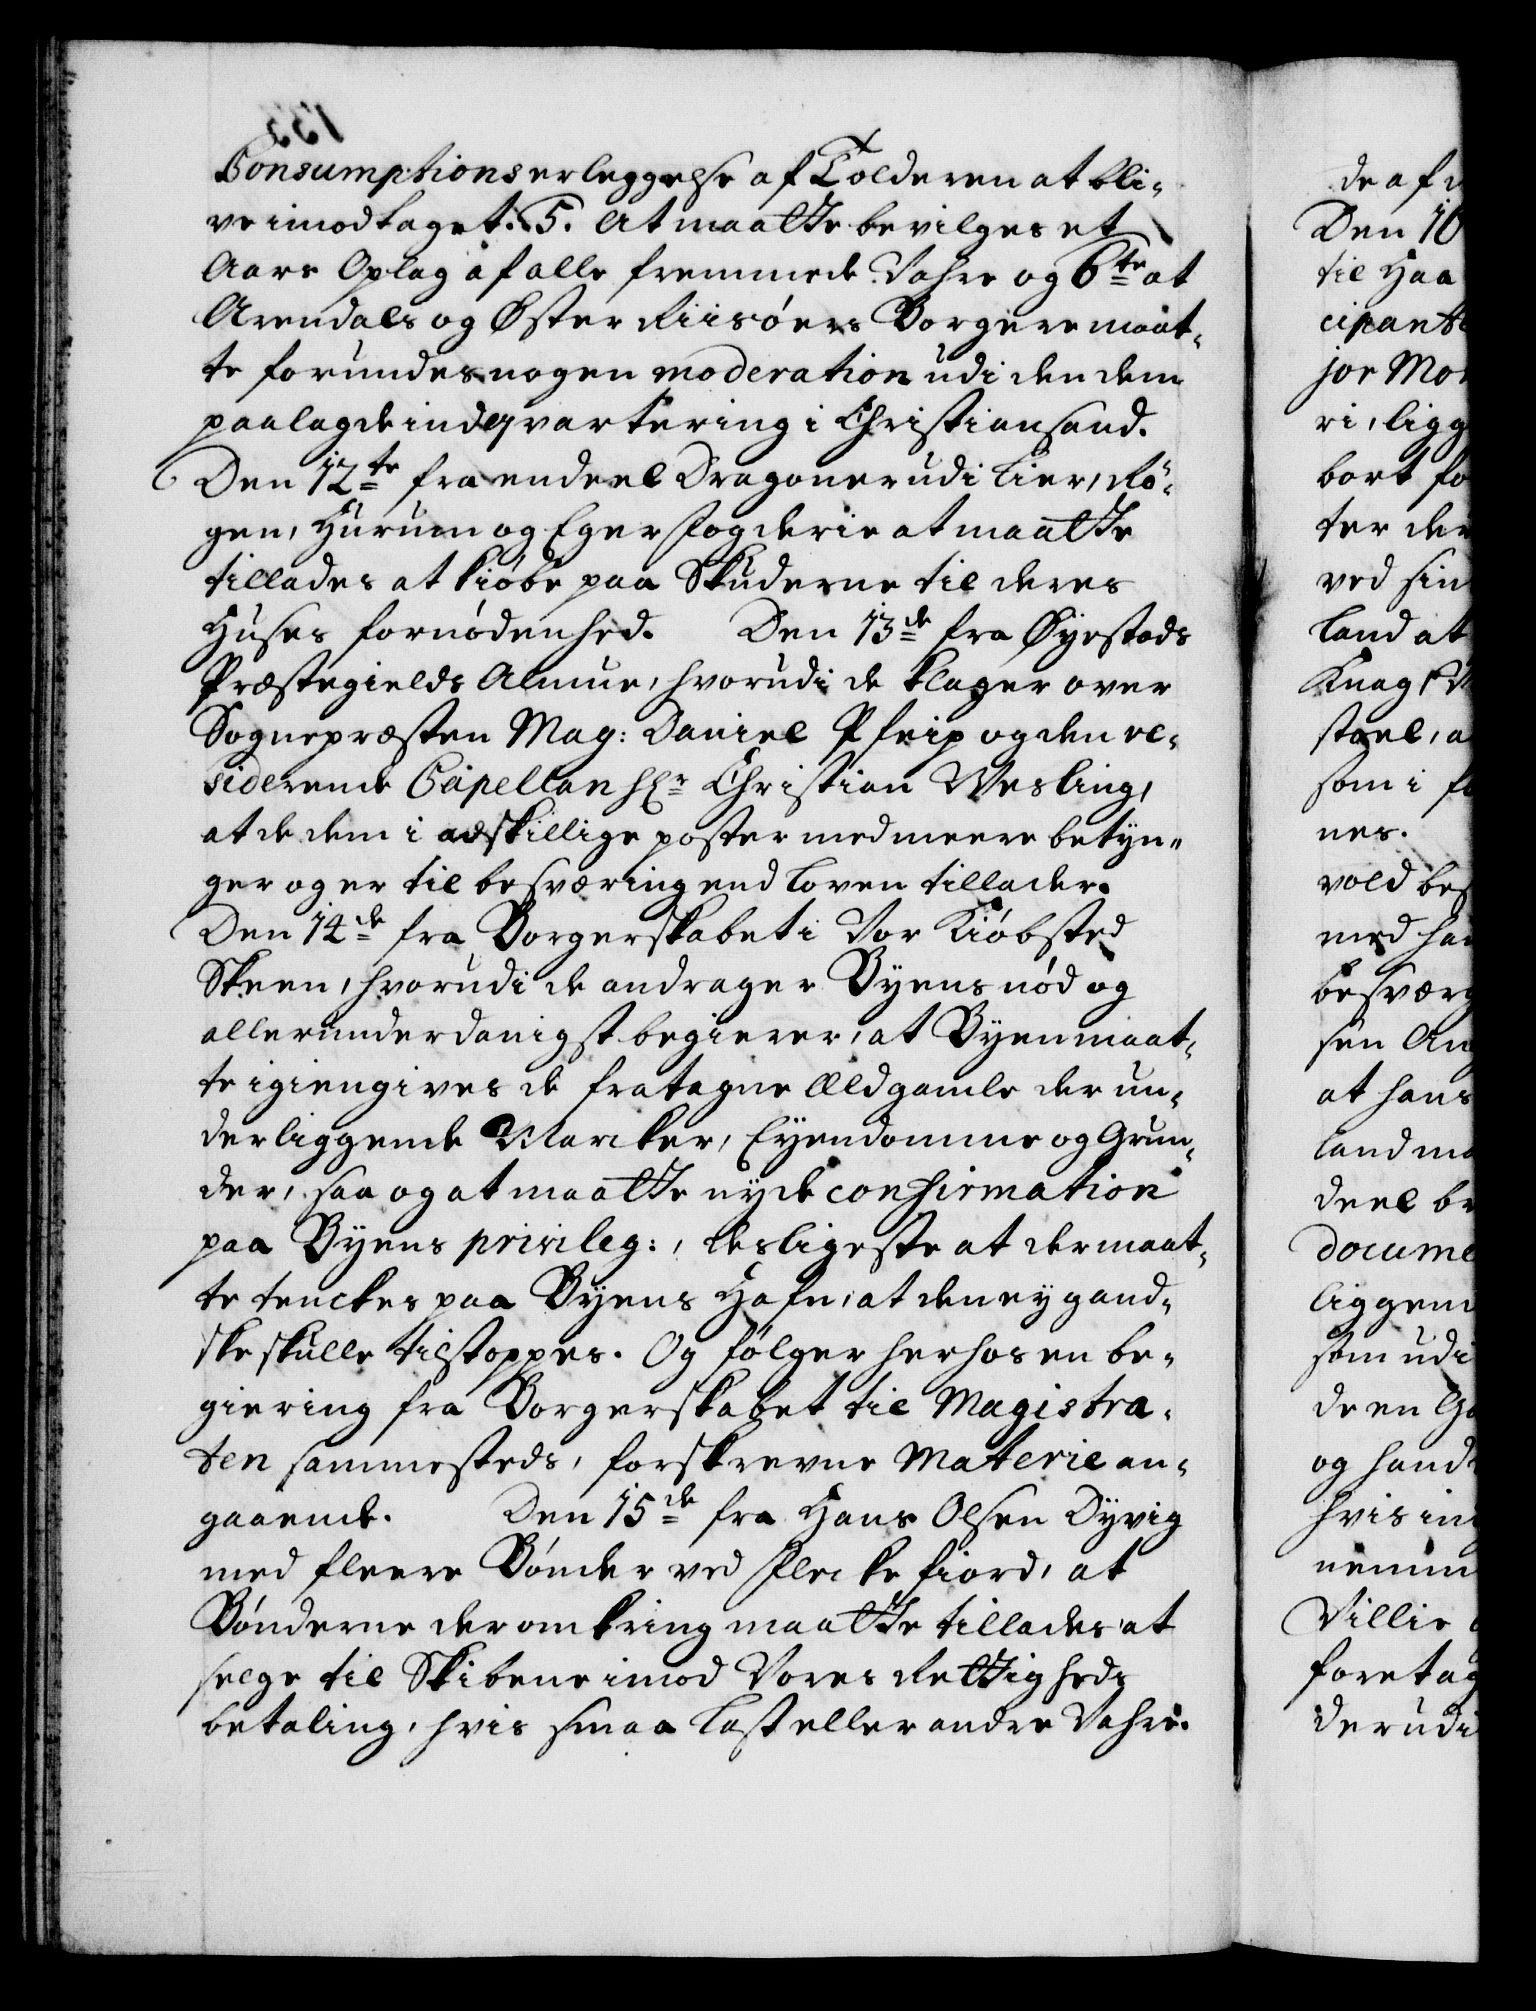 Consumptions erleggelse af Tolderen at bli-
ve imodtaget. 5. At maatte bevilges et
Aars Oplag af alle fremmede Vahre og 6te at
Arendals og Øster Riisøers Borgere maat-
te forundes nogen moderation udi den dem
paalagde indqvartering i Christiansand.
Den 12te fra endeel Dragoner udi Lier, Rø-
gen, Hurum og Eger fogderie at maatte
tillades at kiøbe paa Skuderne til deres
Huses fornødenhed. Den 13de fra Øyestads
Præstegields Almue, hvorudi de klager over
Sognepræsten Mag: Daniel Pfeip og den re-
siderende Capellan Hr Christian Wesling,
at de dem i adskillige poster med meere betyn-
ger og er til besværing end Loven tillader.
Den 14de fra Borgerskabet i Vor Kiøbsted
Skeen, hvorudi de andrager Byens nød og
allerunderdanigst begierer, at Byen maat-
te igiengives de fratagne Ældgamle der un-
derliggende Marcker, Eyendomme og Grun-
der, saa og at maatte nyde confirmation
paa Byens privileg:, desligeste at der maat-
te tenckes paa Byens Hafn, at den ey gand-
ske skulle tilstoppes. Og følger herhos en be-
giering fra Borgerskabet til Magistra-
ten sammesteds, forskrevne Materie an-
gaaende. Den 15de fra Hans Olsen Dyvig
med fleere Bønder ved Fleckefiord, at
Bønderne der omkring maatte tillades at
selge til Skibene imod Vores Rettigheds
betaling, hvis smaa Last eller andre Vahre.
de af
Den 16
til Haa
cipant
jor Mo
ri, ligg
bort fo
ter der
ved sin
Land at
Knag
stoel, a
som i fo
nes.
vold bes
med han
besværg
sen An
at hans
Land ma
deel br
docume
liggen
som udi
de en Go
og hand
hvis in
nemm
Villie
foretag
der udi